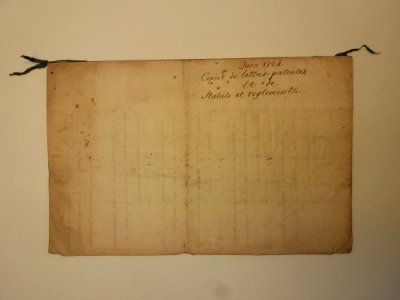 Juin 1724
Copie de lettres patentes
Et de
Statuts et reglements